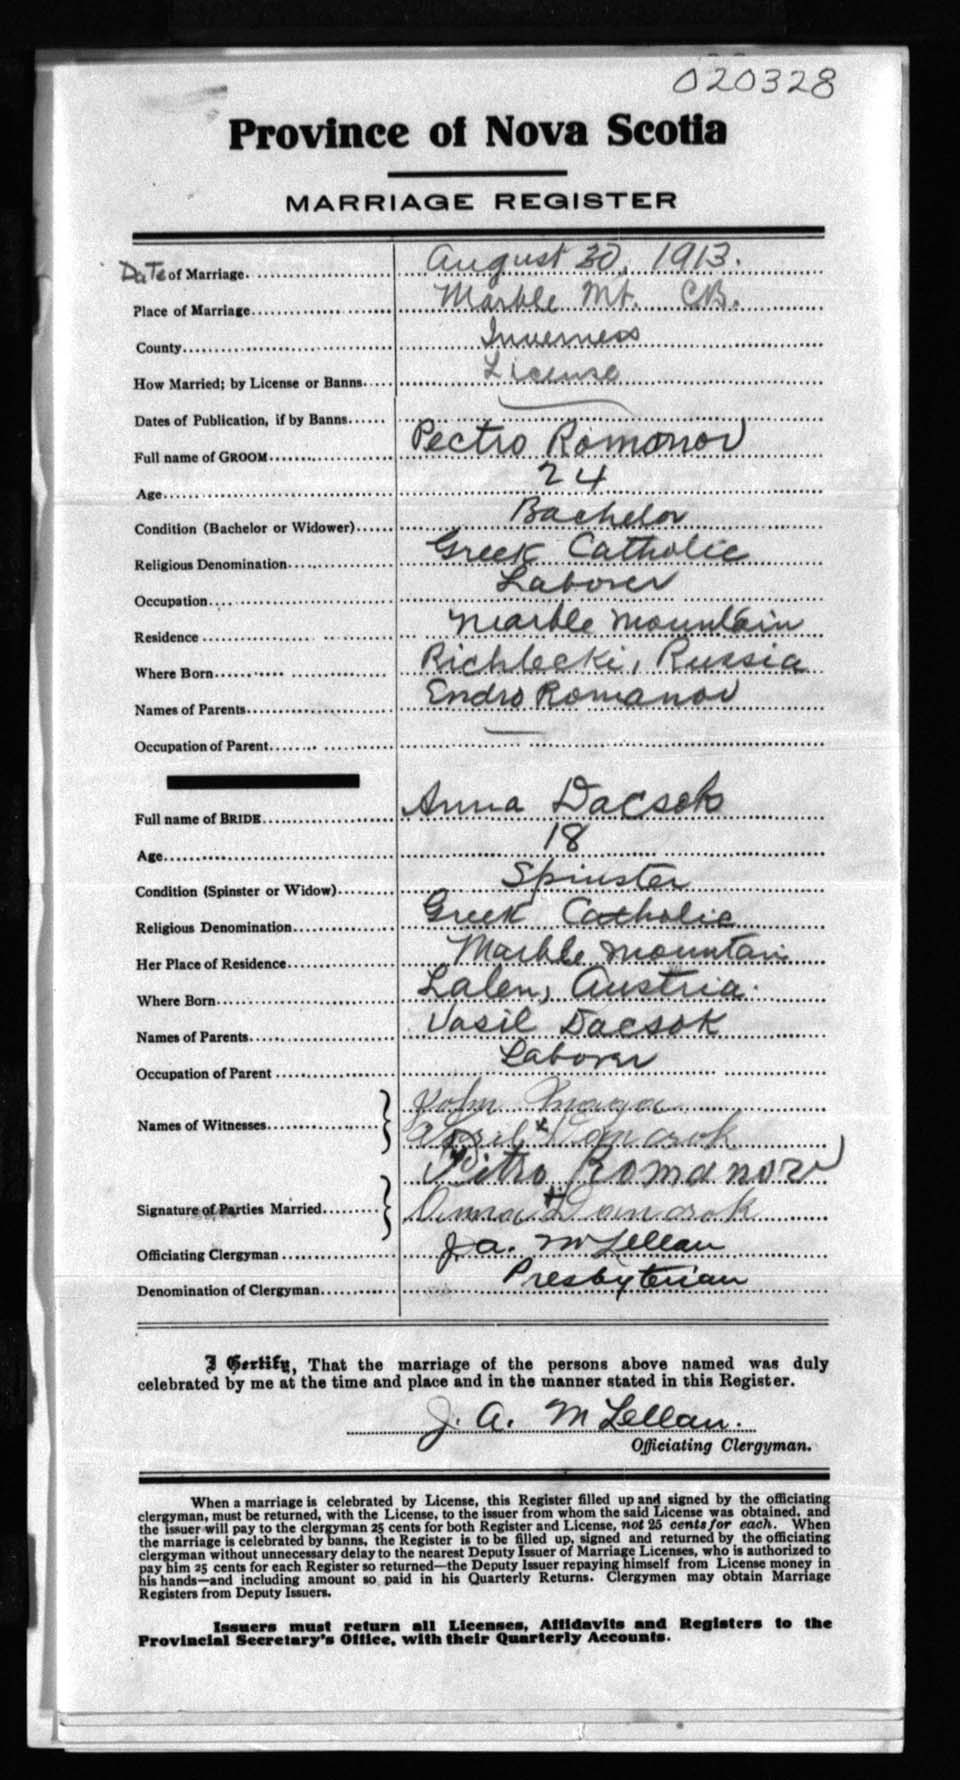 020328
Province of Nova Scotia
MARRIAGE REGISTER
Date of Marriage August 30, 1913.
Place of Marriage Marble Mt. C.B.
County Inverness
How Married; by License or Banns License
Dates of Publication, if by Banns
Full name of GROOM Pectro Romanov
Age 24
Condition (Bachelor or Widower) Bachelor
Religious Denomination Greek Catholic
Occupation Laborer
Residence Marble Mountain
Where Born Richlecki, Russia
Names of Parents Endro Romanov
Occupation of Parent —
Full name of BRIDE Anna Dacsok
Age 18
Condition (Spinster or Widow) Spinster
Religious Denomination Greek Catholic
Her Place of Residence Marble Mountain
Where Born Lalen, Austria.
Names of Parents Vasil Dacsok
Occupation of Parent Laborer
Names of Witnesses John
x
Signature of Parties Married Pitro Romanow
Anna +
Officiating Clergyman J. A. McLellan
Denomination of Clergyman Presbyterian
I Certify, That the marriage of the persons above named was duly
celebrated by me at the time and place and in the manner stated in this Register.
J. A. McLellan.
Officiating Clergyman.
When a marriage is celebrated by License, this Register filled up and signed by the officiating
clergyman, must be returned, with the License, to the issuer from whom the said License was obtained, and
the issuer will pay to the clergyman 25 cents for both Register and License, not 25 cents for each. When
the marriage is celebrated by banns, the Register is to be filled up, signed and returned by the officiating
clergyman without unnecessary delay to the nearest Deputy Issuer of Marriage Licenses, who is authorized to
pay him 25 cents for each Register so returned—the Deputy Issuer repaying himself from License money in
his hands—and including amount so paid in his Quarterly Returns. Clergymen may obtain Marriage
Registers from Deputy Issuers.
Issuers must return all Licenses, Affidavits and Registers to the
Provincial Secretary's Office, with their Quarterly Accounts.